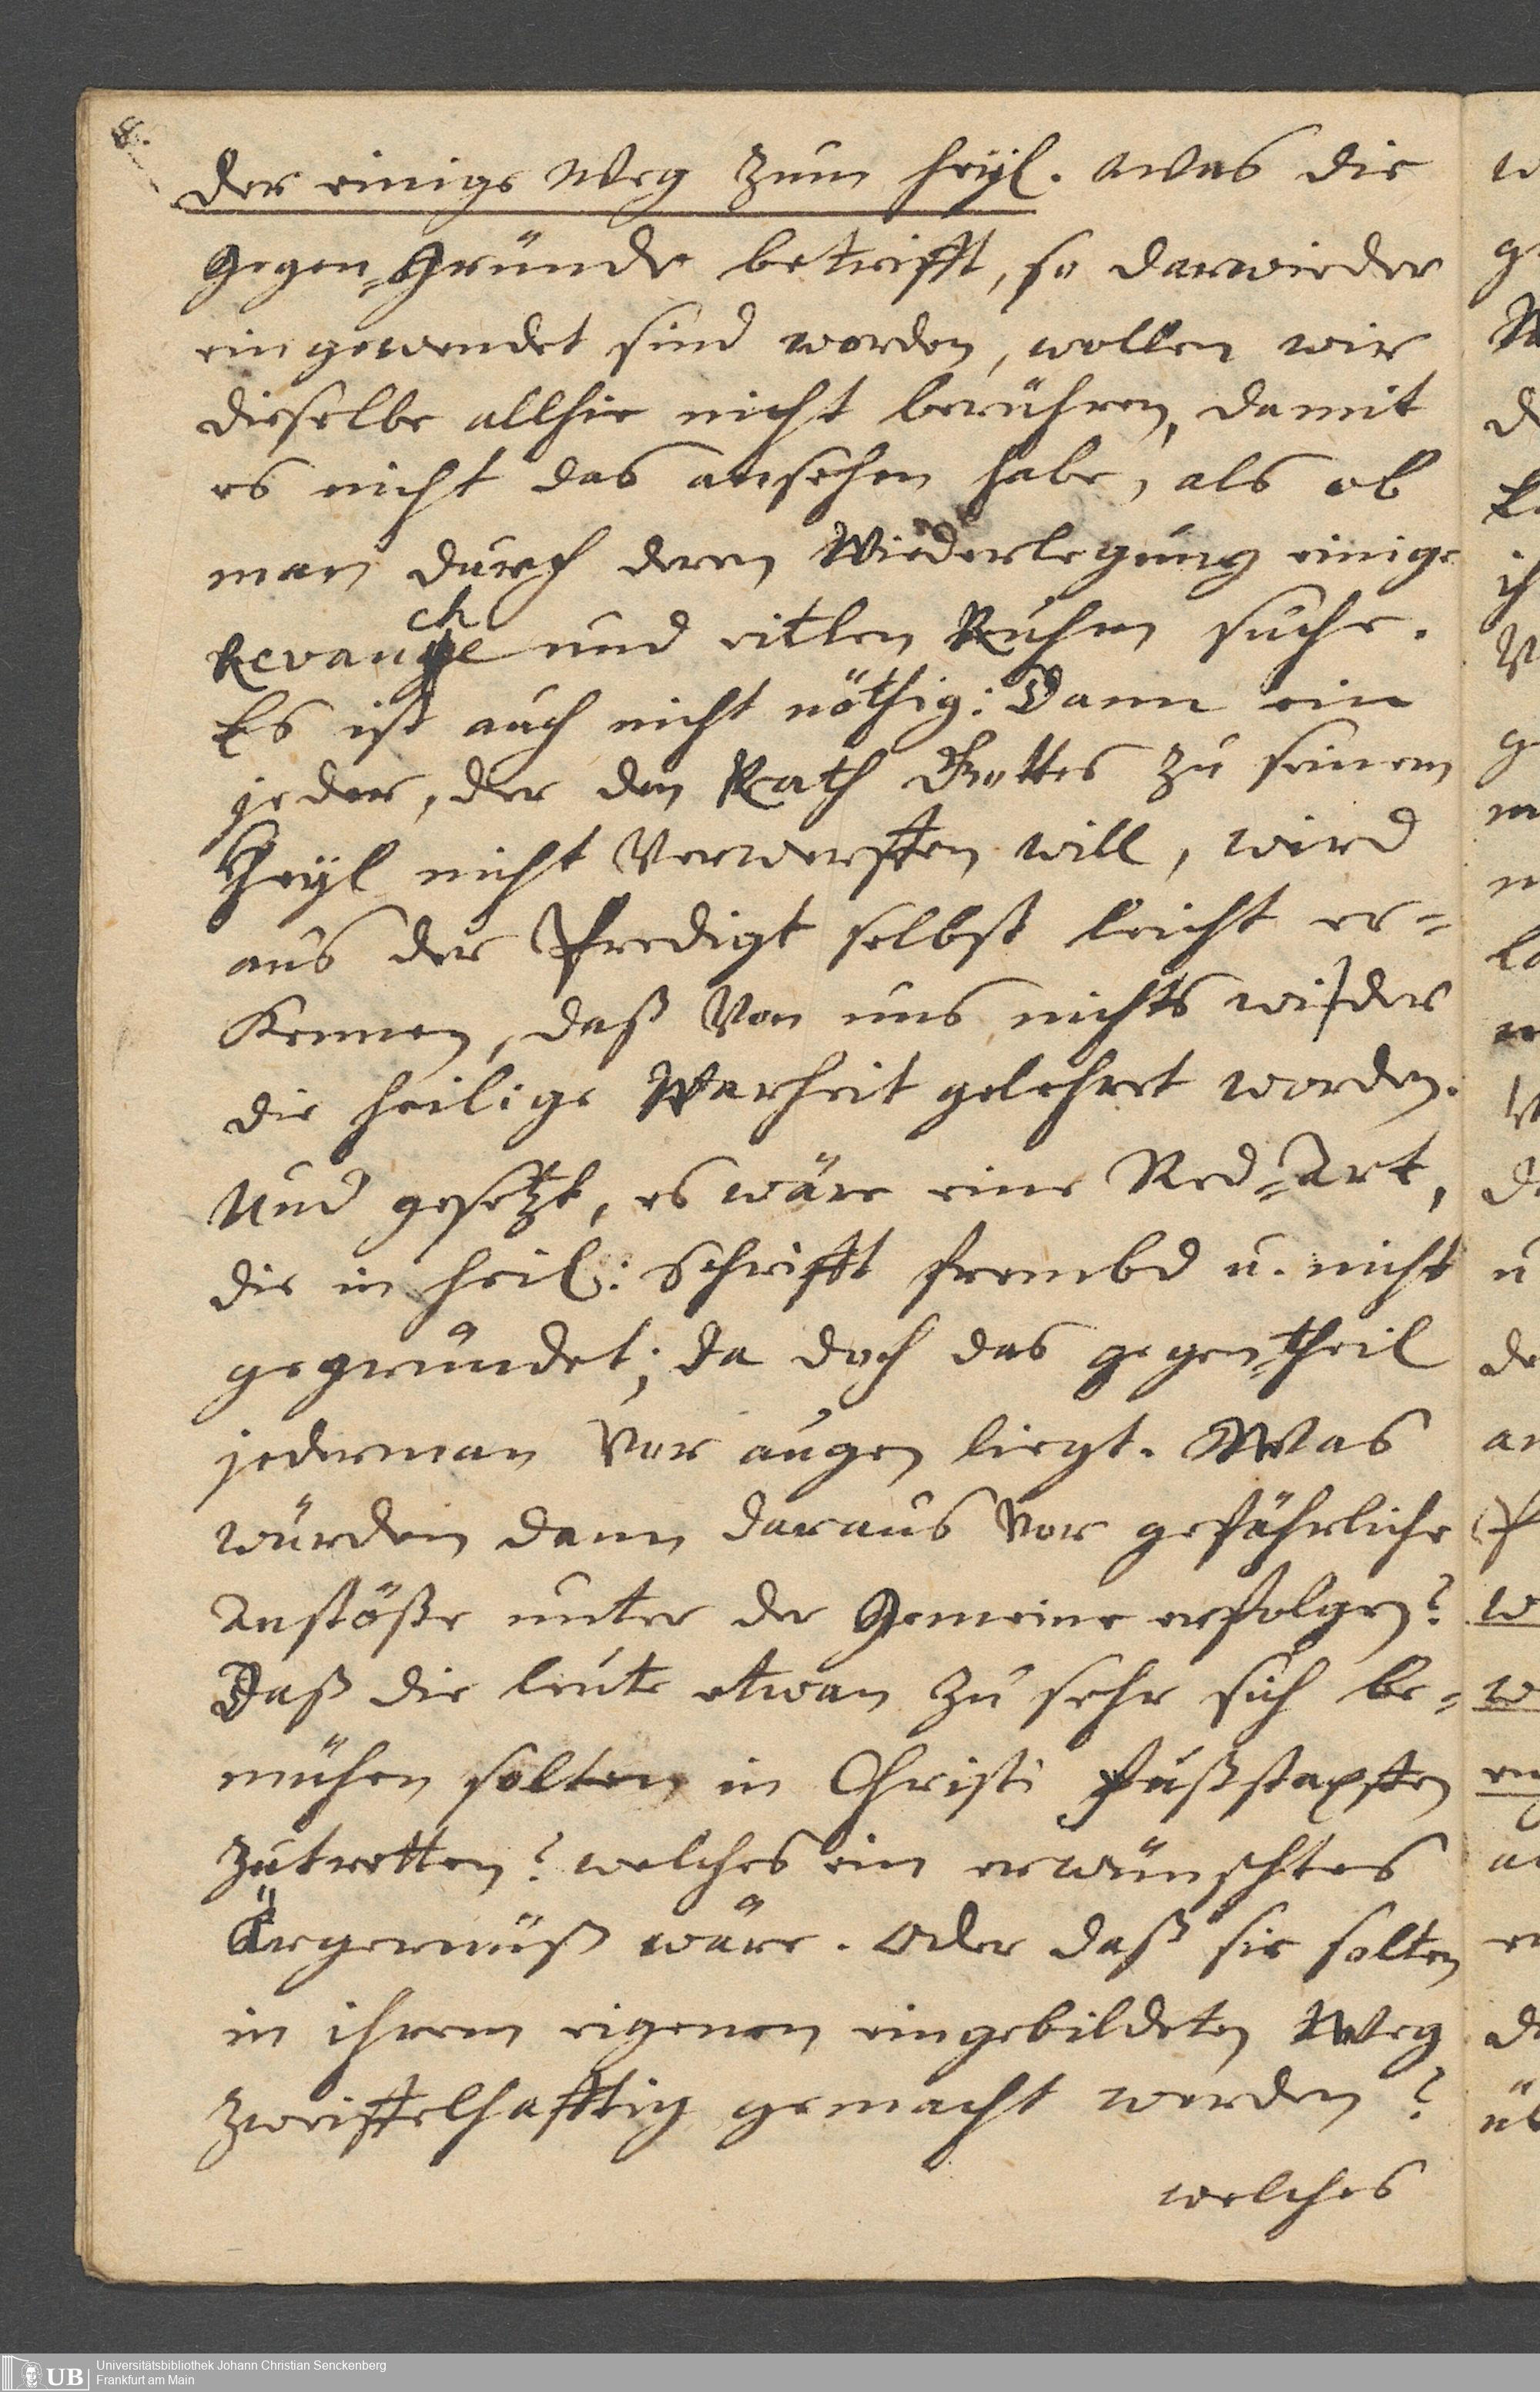 8.
der einige Weg zum heyl. Was die
Gegen-Gründe betrifft, so darwieder
eingewendet sind worden, wollen wir
dieselbe allhie nicht berühren, damit
es nicht das ansehen habe, als ob
man durch deren Wiederlegung einige
Revanche und eitlen Ruhm suche.
Es ist auch nicht nöthig: Dann ein
jeder, der den Rath Gottes zu seinem
Heyl nicht Verwerffen will, wird
aus der Predigt selbst leicht er-
kennen, daß Von uns nichts wider
die heilige Warheit gelehret worden.
Und gesetzt, es wäre eine Red-Art,
die in heil: Schrifft frembd u. nicht
gegründet; da doch das gegentheil
jederman Vor augen liegt. Was
würden dann daraus Vor gefährliche
Anstöße unter der Gemeine erfolgen?
Daß die leute etwan zu sehr sich be-
mühen solten in Christi Fußstapffen
zutretten? welches ein erwünschtes
Ärgernüß wäre. Oder daß sie solten
in ihrem eigenen eingebildeten Weg
zweiffelhafftig gemacht werden?
welches
UB
Universitätsbibliothek Johann Christian Senckenberg
Frankfurt am Main